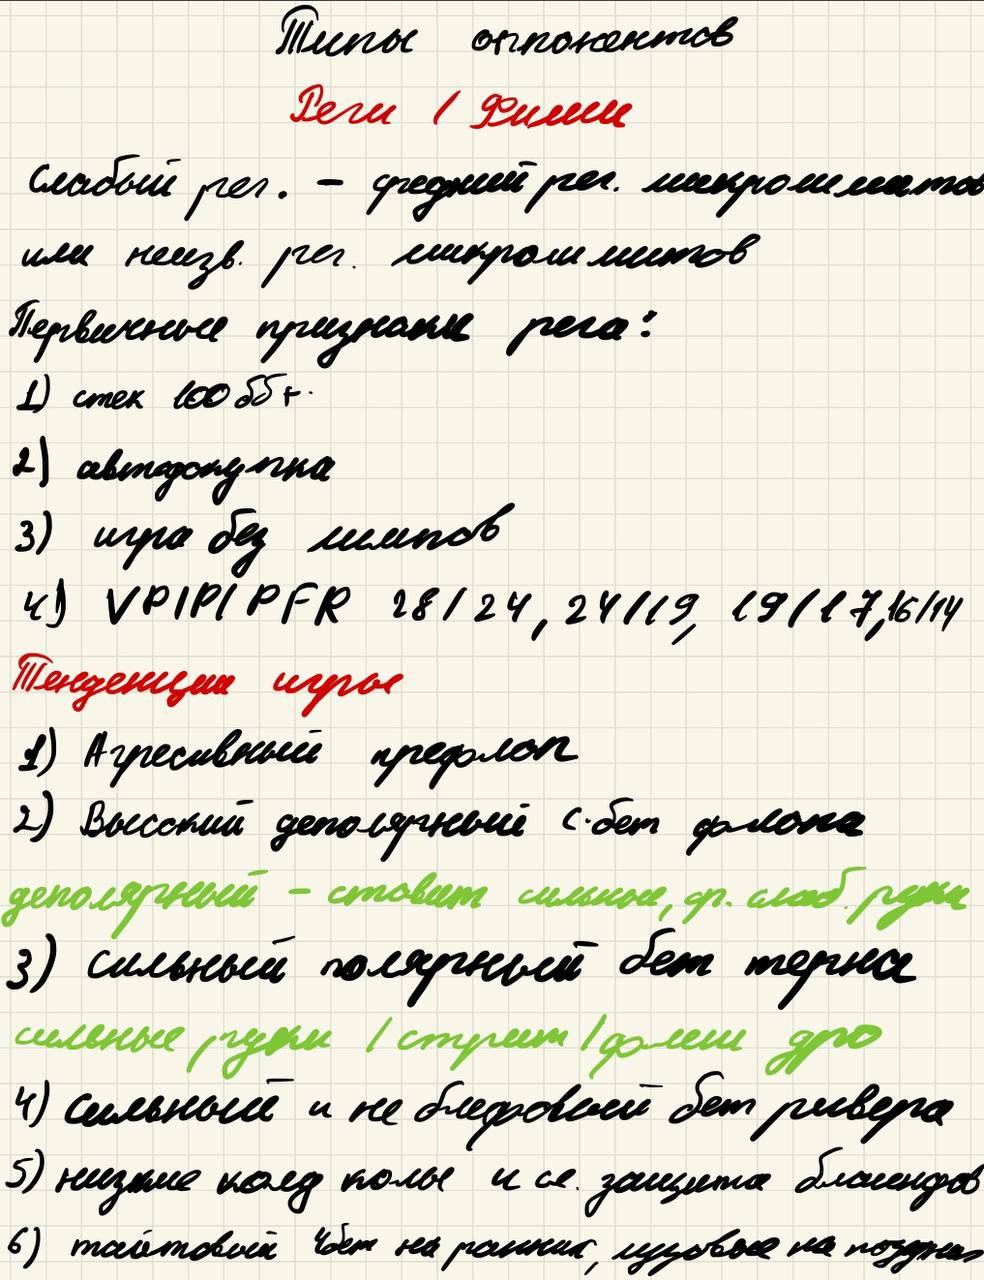 Типы оппонентов
Реги / Фиши
Слабый рег. - средний рег. микролимитов
или неизв. рег. микролимитов
Первичные признаки рега:
1) стек 100 бб+
2) автодокупка
3) игра без лимпов
4) VPIP/PFR 28/24, 24/19, 19/17, 16/14
Тенденции игры
1) Агресивный префлоп
2) Высокий деполярный с-бет флопа
деполярный - ставит сильные, ср. слаб. руки
3) сильный полярный бет терна
сильные руки / стрит / флеш дро
4) сильный и не блефовый бет ривера
5) низкие колд колы и сл. защита блаиндов
6) тайтовый 4бет на ранних, лузовые на поздних